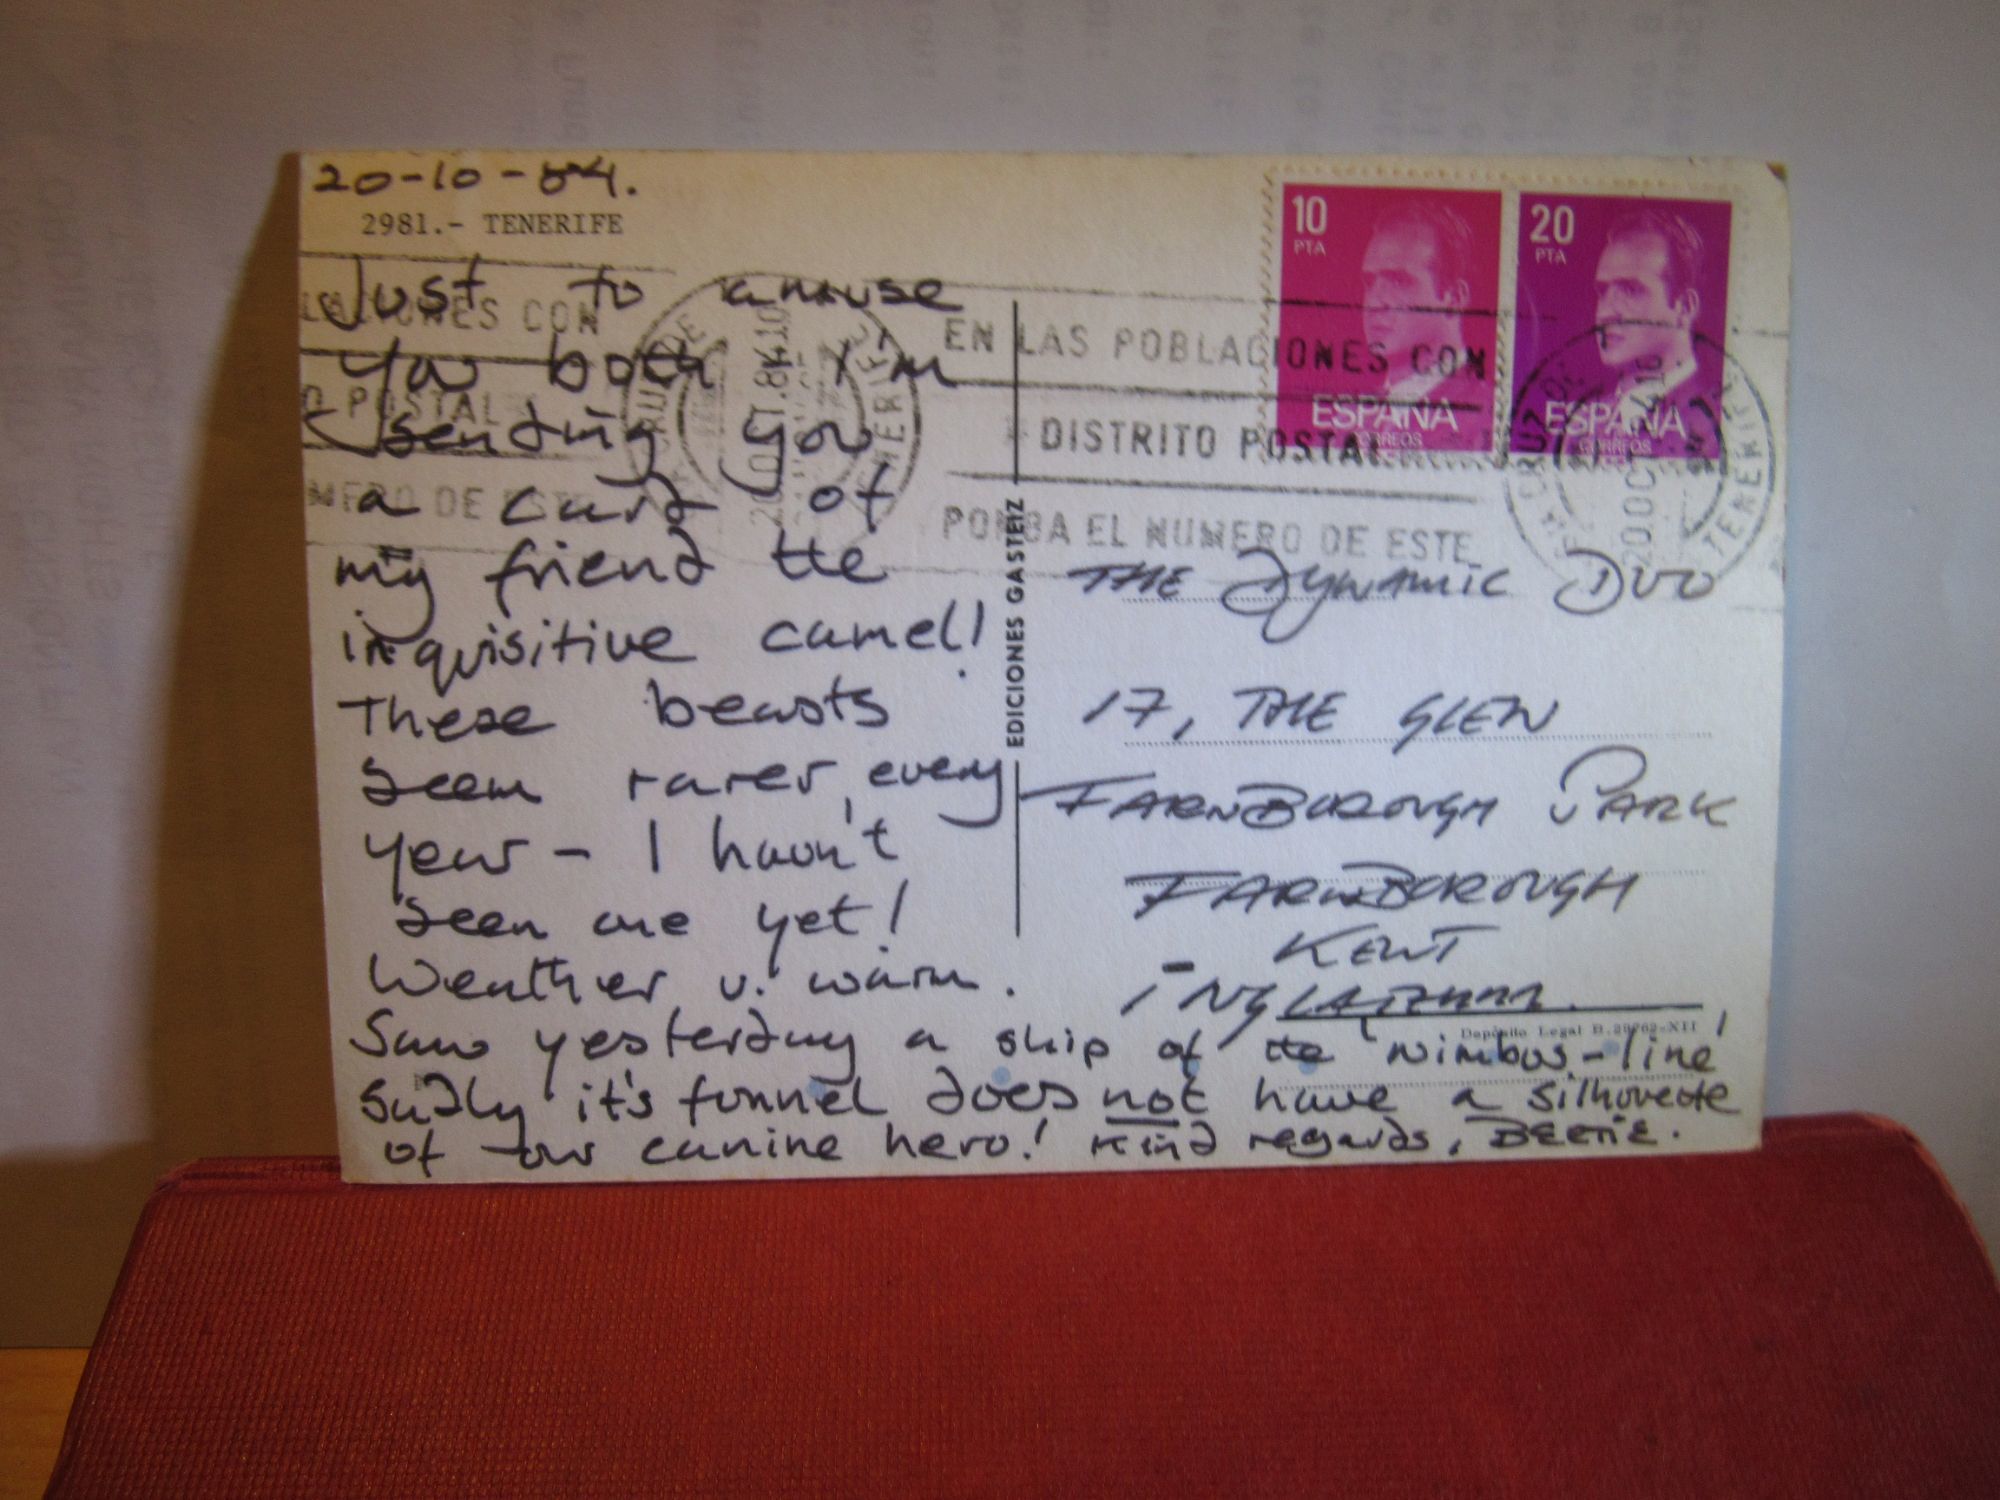 20-10-84.
2981.- TENERIFE
Just to amuse
you both I'm
sending you
a card of
my friend the
inquisitive camel!
These beasts
seem rarer every
year - I havn't
seen one yet!
Weather v. warm.
Saw yesterday a ship of the 'nimbus-line'
sadly it's funnel does not have a silhouette
of our canine hero! Kind regards,
LACIONES CON
O POSTAL
MERO DE ESTE
20 OCT.84.10
TENERIFE
EDICIONES GASTEIZ
10
PTA
ESPAÑA
CORREOS
20
PTA
ESPAÑA
CORREOS
EN LAS POBLACIONES CON
DISTRITO POSTAL
PONGA EL NUMERO DE ESTE
CRUZ DE TENERIFE
20 OCT
THE DYNAMIC DUO
17, THE GLEN
FARNBOROUGH PARK
FARNBOROUGH
KENT
INGLATERRA.
Depósito Legal B.